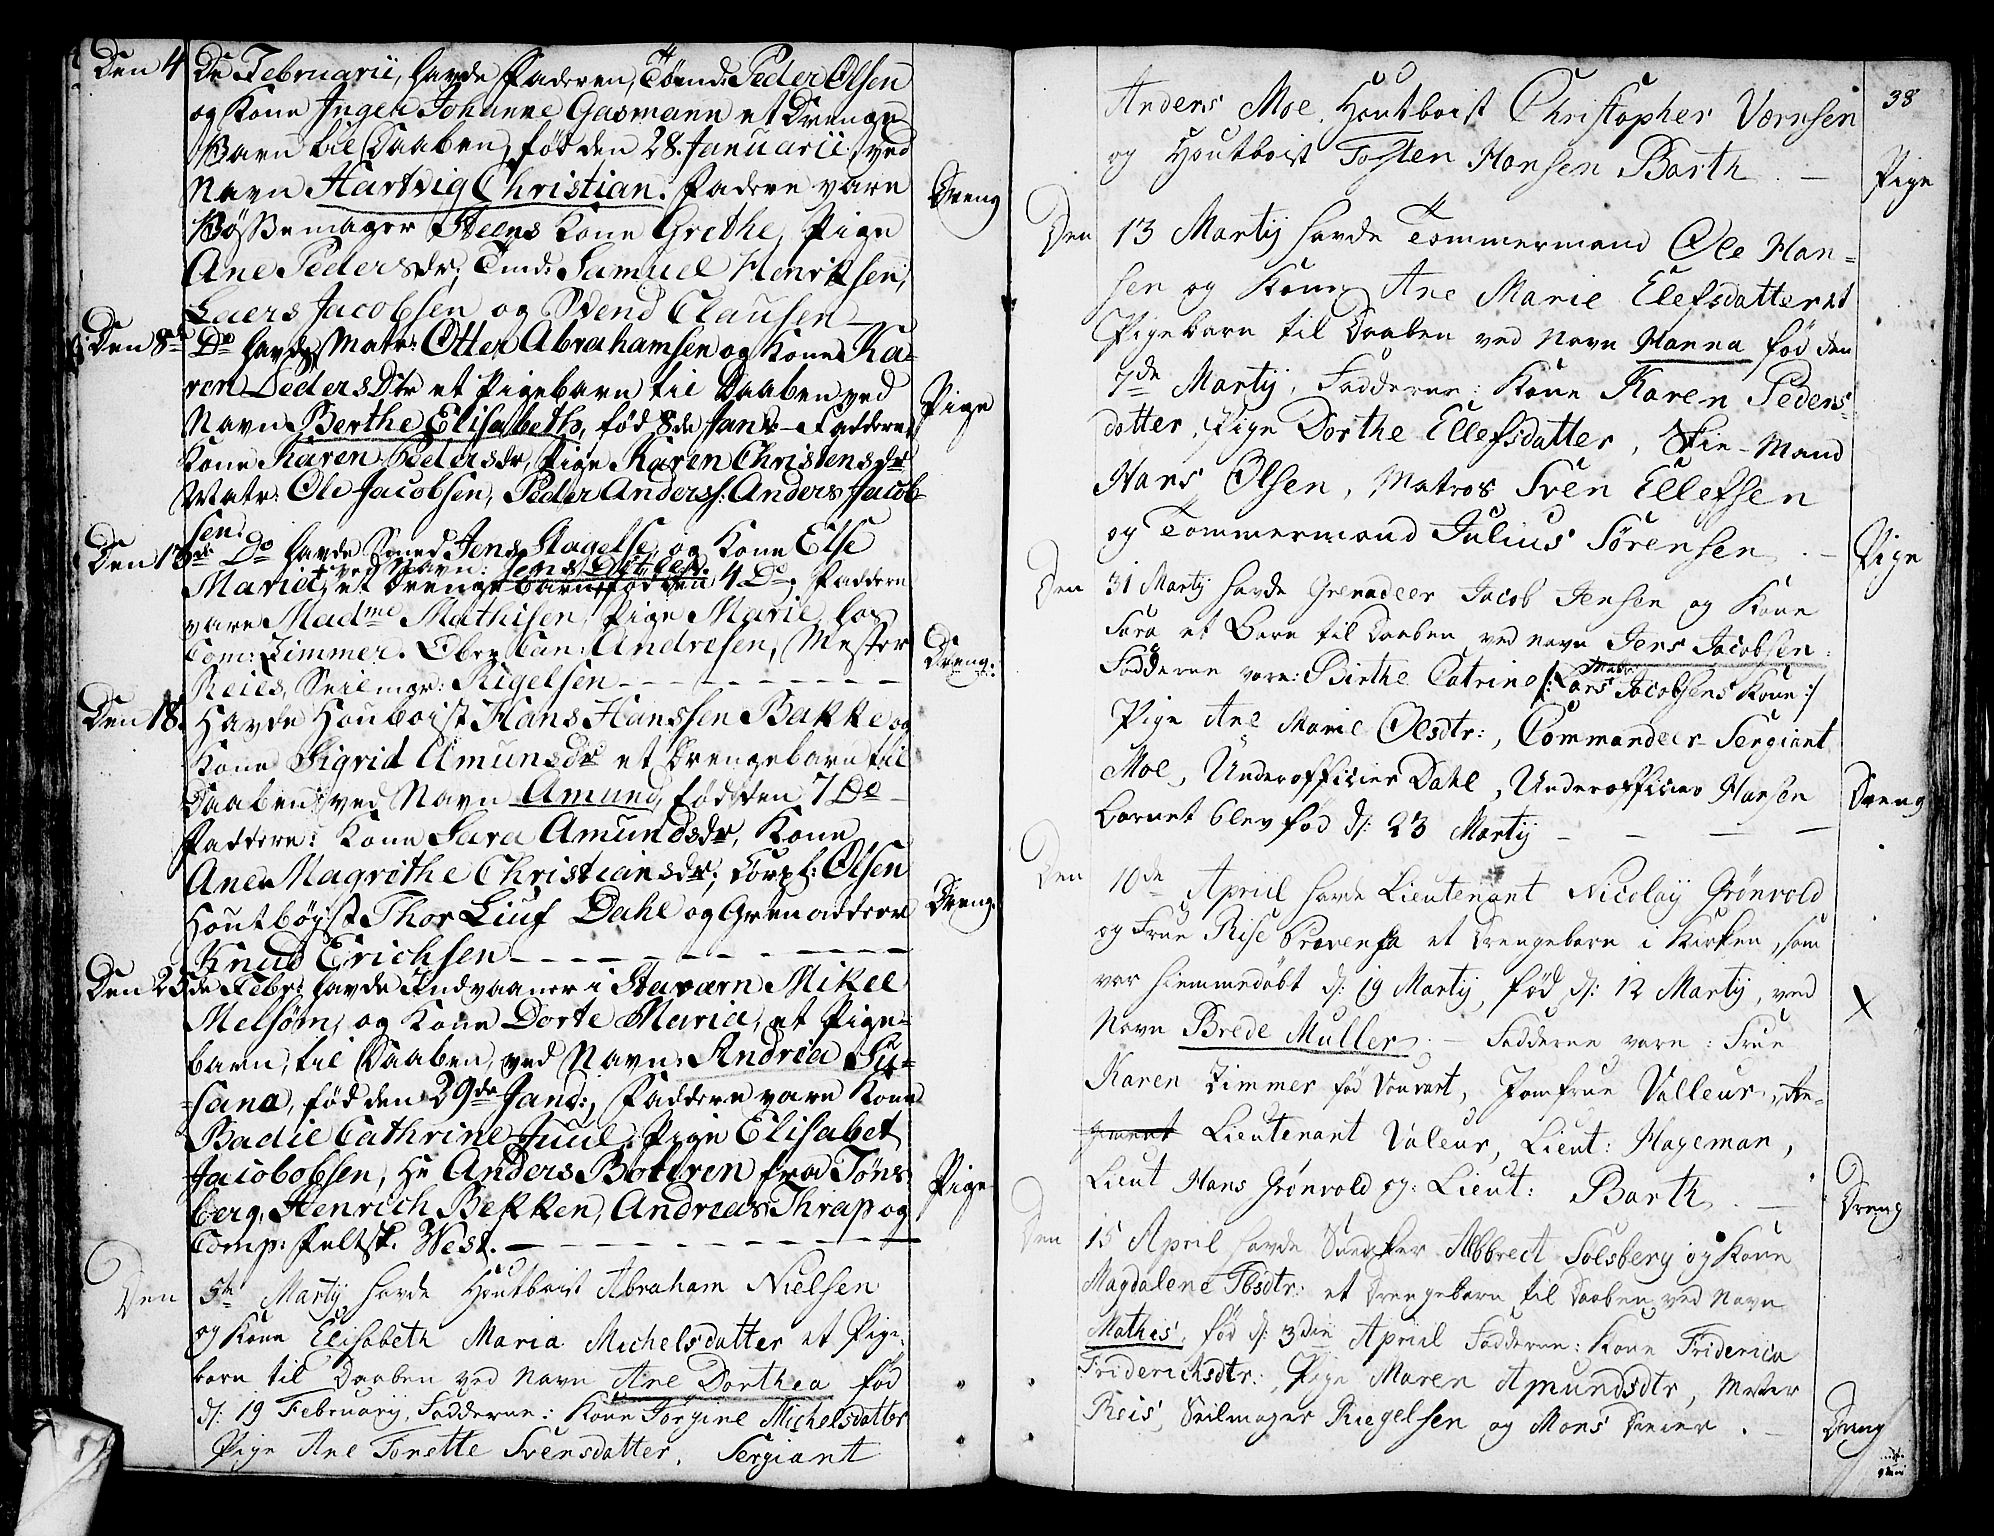 Den 4 De Februarii, havde Faderen, Tömd: Peder Olsen
og Kone Inger Johanne Gasmann et Drenge
Barn til Daaben, föd den 28. Januarii, ved
Navn Hartvig Christian. Faddere vare
Bößemager Steens Kone Grethe, Pige
Ane Pedersdr; Tmd: Samuel Henriksen,
Laers Jacobsen og Svend Clausen
Dreng
Den 8de Do havde Matr: Otter Abrahamsen og Kone Ka-
ren PedersDtr et Pigebarn til Daaben ved
Navn Berthe Elisabeth, föd 8de Janr - Faddere,
Kone Karen Pedersdr, Pige Karen Christensdr
Matr: Ole Jacobsen, Peder Anderss: Anders Jacob-
sen.
Pige
Den 13de Do havde Smed Jens Slagelse, og Kone Else
ved Navn: Jens Ditlef.
Maria, et Drenge barn, föd den 4 Do, Faddere
vare Madme Mathisen, Pige Marie hos
Com: Zimmer. Ober Can: Andresen, Mester
Reies, Seilmgr: Rigelsen
Dreng.
Den 18. Havde Houboist Hans Hanssen Bakke og
Kone Sigrid Amunsdr et Drengebarn til
Daaben, ved Navn Amund, föd den 7 Do
Faddere: Kone Sara Amundsdr, Kone
Ane Magrethe Christiansdr; Corpl: Olsen
Houtböist Thor Liuf Dahl og Grenadeer
Knud Erichsen
Dreng.
Den 25de Febr: havde Indvaaner i Staværn Mikel
Melsöm, og Kone Dorte Maria, et Pige-
barn, til Daaben, ved Navn: Andrea Su-
sana, föd den 29de Jand:, Faddere vare Kone
Badil Cathrine Juul, Pige Elisabet
Jacobobsen, Hr Anders Bottren fra Töns
berg, Henrich Bekken, Andreas Thrap og
Comp: Feltsk. West.
Pige
Den 5te Martij havde Houtboist Abraham Nielsen
og Kone Elisabeth Maria Michelsdatter et Pige-
barn til Daaben ved Navn Ane Dorthea föd
d: 19 Februarij, Fadderne: Kone Jörgine Michelsdatter
Pige Ane Tonette Svensdatter, Sergiant
38
Anders Moe, Houtboist Christopher Værnsen
og Houtboist Tosten Hansen Barth.
Pige
Den 13 Martij havde Tommermand Ole Han-
sen og Kone Ane Marie Elefsdatter et
Pigebarn til Daaben ved Navn Hanna föd den
7de Martij, Fadderne: Kone Karen Peders-
datter, Pige Dorthe Ellefsdatter, Fri-Mand
Hans Olsen, Matros Sven Ellefsen
og Tommermand Julius Sörensen.
Pige
Den 31 Martij havde Grenadeer Jacob Jensen og Kone
Sara et Barn til Daaben ved navn Jens Jacobsen.
Fadderne vare: Birthe Catrine /: Matr: Lars Jacobsens Kone :/
Pige Ane Marie Olsdtr:, Commandeer-Sergiant
Moe, Underofficier Dahl, Underofficier Hansen
Barnet blev föd d: 23 Martij
Dreng
Den 10de Apriil havde Lieutenant Nicolaij Grönvold
og Frue Rise Pravensa et Drengebarn i Kirken, som
var hiemmedöbt d: 19 Martij, föd d: 12 Martij, ved
Navn Brede Muller. Fadderne vare: Frue
Karen Zimmer föd Vouvart, Jomfrue Valleur,
Lieutenant Valeur, Lieut: Hageman,
Lieut Hans Grönvold og: Lieut: Barth.
X
Dreng
Den 15 April havde Snedker Abbrect Solsberg og Kone
Magdalene Ibsdtr: et Drengebarn til Daaben ved Navn
Mathis', föd d: 3die Apriil Fadderne: Kone Friderica
Friderichsdtr:, Pige Maren Amundsdtr, Mester
Reis, Seilmager Riegelsen og Mons Dreier.
Dreng